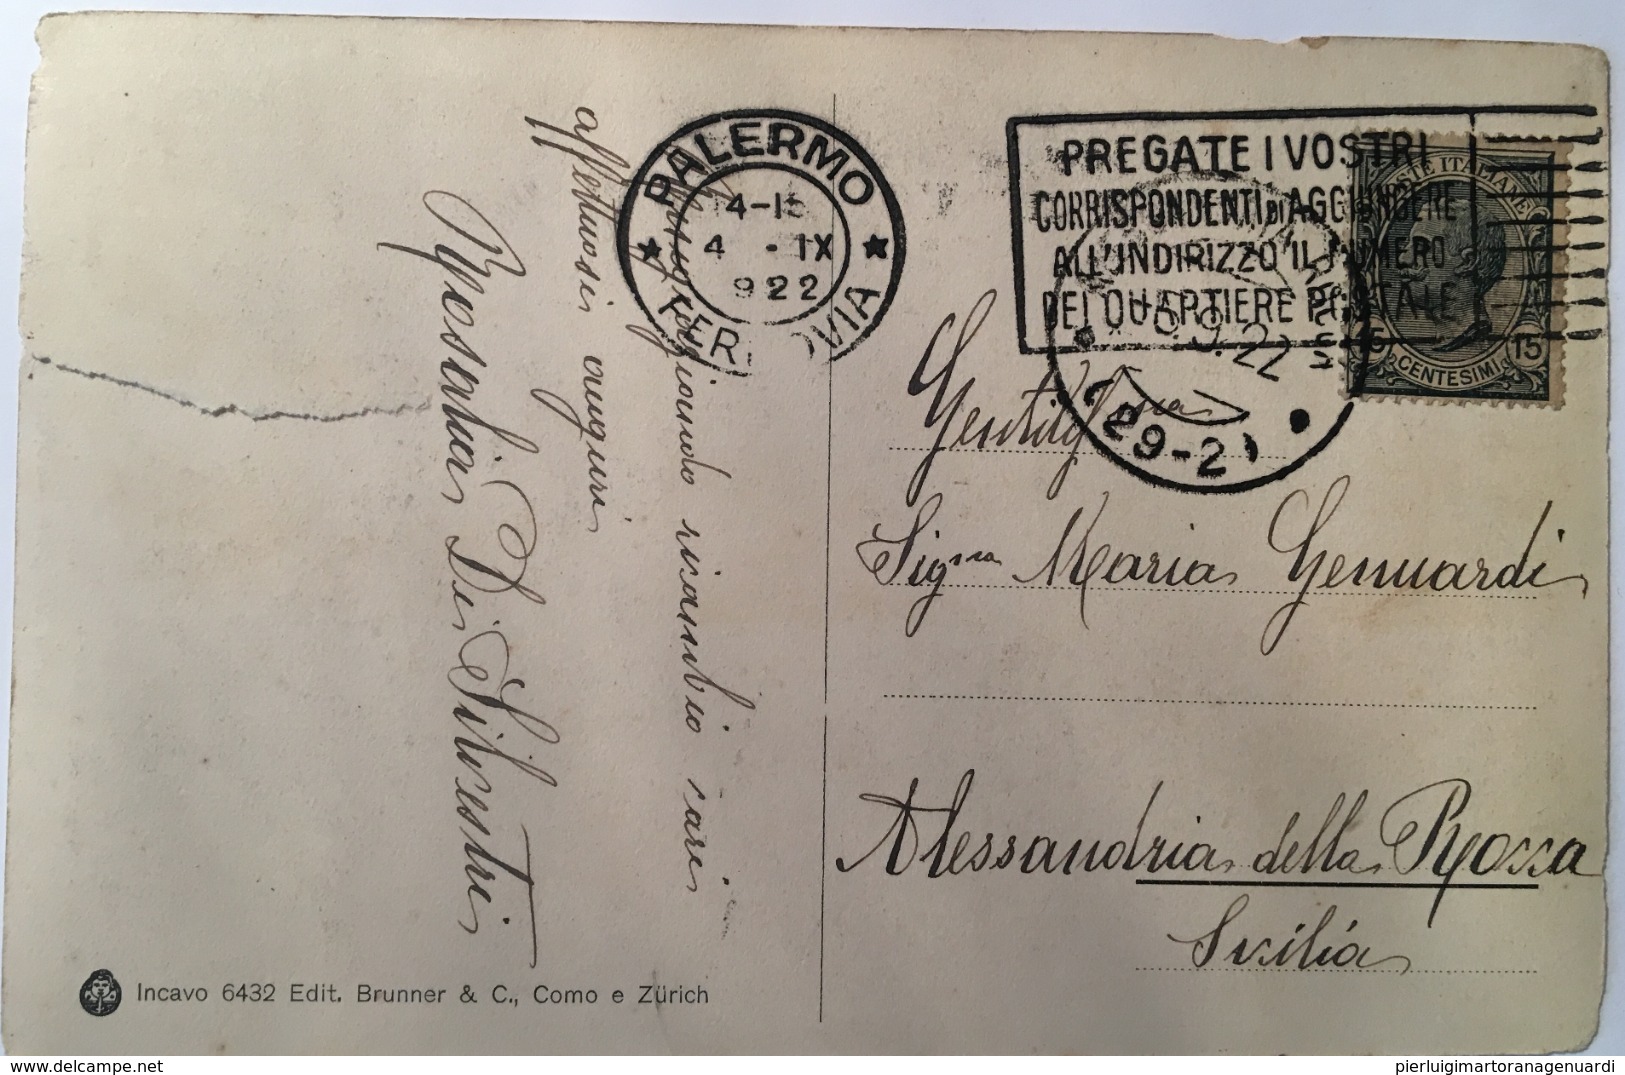 PALERMO
4-15
4 - IX
922
FERROVIA
PREGATE I VOSTRI
CORRISPONDENTI DI AGGIUNGERE
ALL'INDIRIZZO IL NUMERO
DEL QUARTIERE POSTALE
POSTE ITALIANE
15 CENTESIMI 15
9.22
29-21
ringraziando ricambio cari
affettuosi auguri
Rosalia Di Silvestri
Gentil.ma
Sig.na Maria Genuardi
Alessandria della Rocca
Sicilia
Incavo 6432 Edit. Brunner & C., Como e Zürich
pierluigimartoranagenuardi